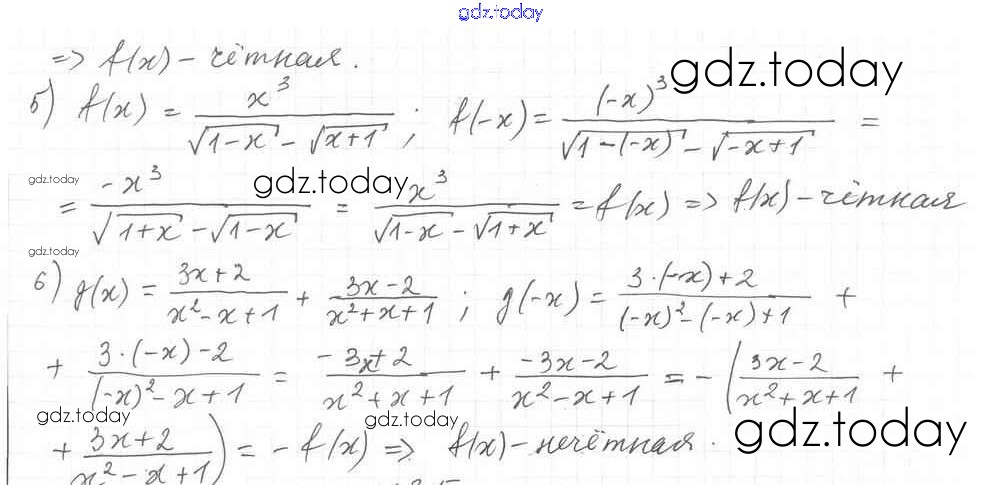 gdz.today
=> f(x) – чётная. gdz.today
5) f(x) = x³/(√(1-x) - √(x+1)); f(-x) = (-x)³/(√(1-(-x)) - √(-x+1)) =
gdz.today gdz.today
= -x³/(√(1+x) - √(1-x)) = x³/(√(1-x) - √(1+x)) = f(x) => f(x) – чётная
gdz.today
6) g(x) = (3x+2)/(x²-x+1) + (3x-2)/(x²+x+1); g(-x) = (3·(-x)+2)/((-x)²-(-x)+1) +
+ (3·(-x)-2)/((-x)²-x+1) = (-3x+2)/(x²+x+1) + (-3x-2)/(x²-x+1) = -((3x-2)/(x²+x+1) +
gdz.today gdz.today gdz.today
+ (3x+2)/(x²-x+1)) = -f(x) => f(x) – нечётная.